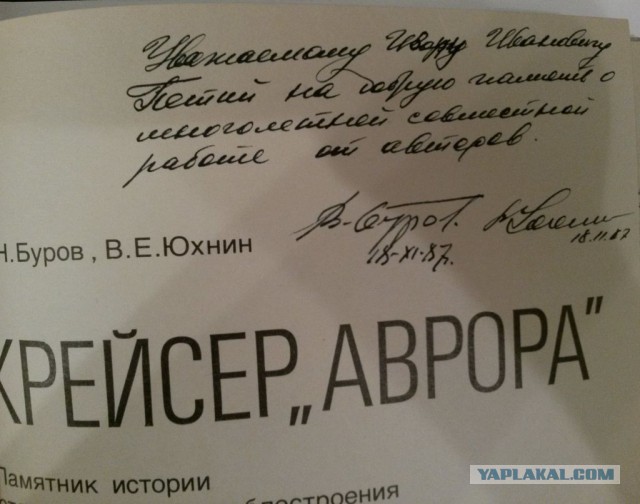 Уважаемому Игорю Ивановичу
на добрую память о
многолетней совместной
работе от авторов.
В. Буров.
18-XI-87г.
18.11.87
Н.Буров, В.Е.Юхнин
КРЕЙСЕР „АВРОРА"
Памятник истории
YAPLAKAL.COM